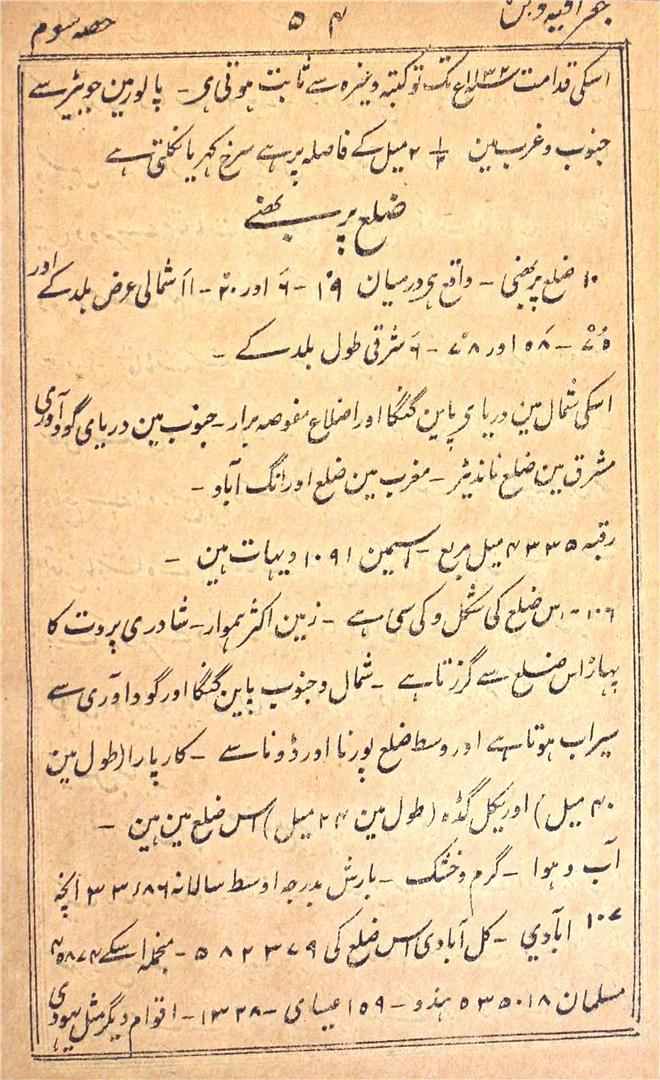 جغرافیہ دکن ۵۴ حصہ سوم
اسکی قدامت ۱۳۲۲ع تک تو کتبہ وغیرہ سے ثابت ہوتی ہی - پالور مین جو بیڑ سے
جنوب و غرب مین ۲ ۱/۲ میل کے فاصلہ پر ہے سرخ کھریا نکلتی ہے
ضلع پربھنے
۱۰ ضلع پربھنی - واقع ہی درمیان ۱۹ - ۶ اور ۲۰ - ۱۱ شمالی عرض بلد کے اور
۷۵ - ۵۸ اور ۷۸ - ۶ شرقی طول بلد کے -
اسکی شمال مین دریای پاین گنگا اور اضلاع مفوضہ برار - جنوب مین دریای گوداوری
مشرق مین ضلع ناندیڑ - مغرب مین ضلع اورنگ آباد -
رقبہ ۴۳۳۵ میل مربع - اسمین ۱۰۹۱ دیہات ہین -
۱۰۶ - اس ضلع کی شکل و کی سی ہے - زمین اکثر ہموار - شادری پروت کا
پہاڑ اس ضلع سے گزرتا ہے - شمال و جنوب پاین گنگا اور گوداوری سے
سیراب ہوتا ہے اور وسط ضلع پورنا اور ڈونا سے - کارپارا (طول مین
۴۰ میل) اور یکل گڈہ (طول مین ۲۴ میل) اس ضلع مین ہین -
آب و ہوا - گرم و خشک - بارش بدرجہ اوسط سالانہ ۳۳٫۸۶ انچہ
۱۰۷ ابادی - کل آبادی اس ضلع کی ۵۸۲۳۷۹ - منجملہ اسکے ۴۵۸۷۴
مسلمان ۵۳۵۰۱۸ ہندو - ۱۵۹ عیسای - ۱۳۲۸ - اقوام دیگر مثل یہودی